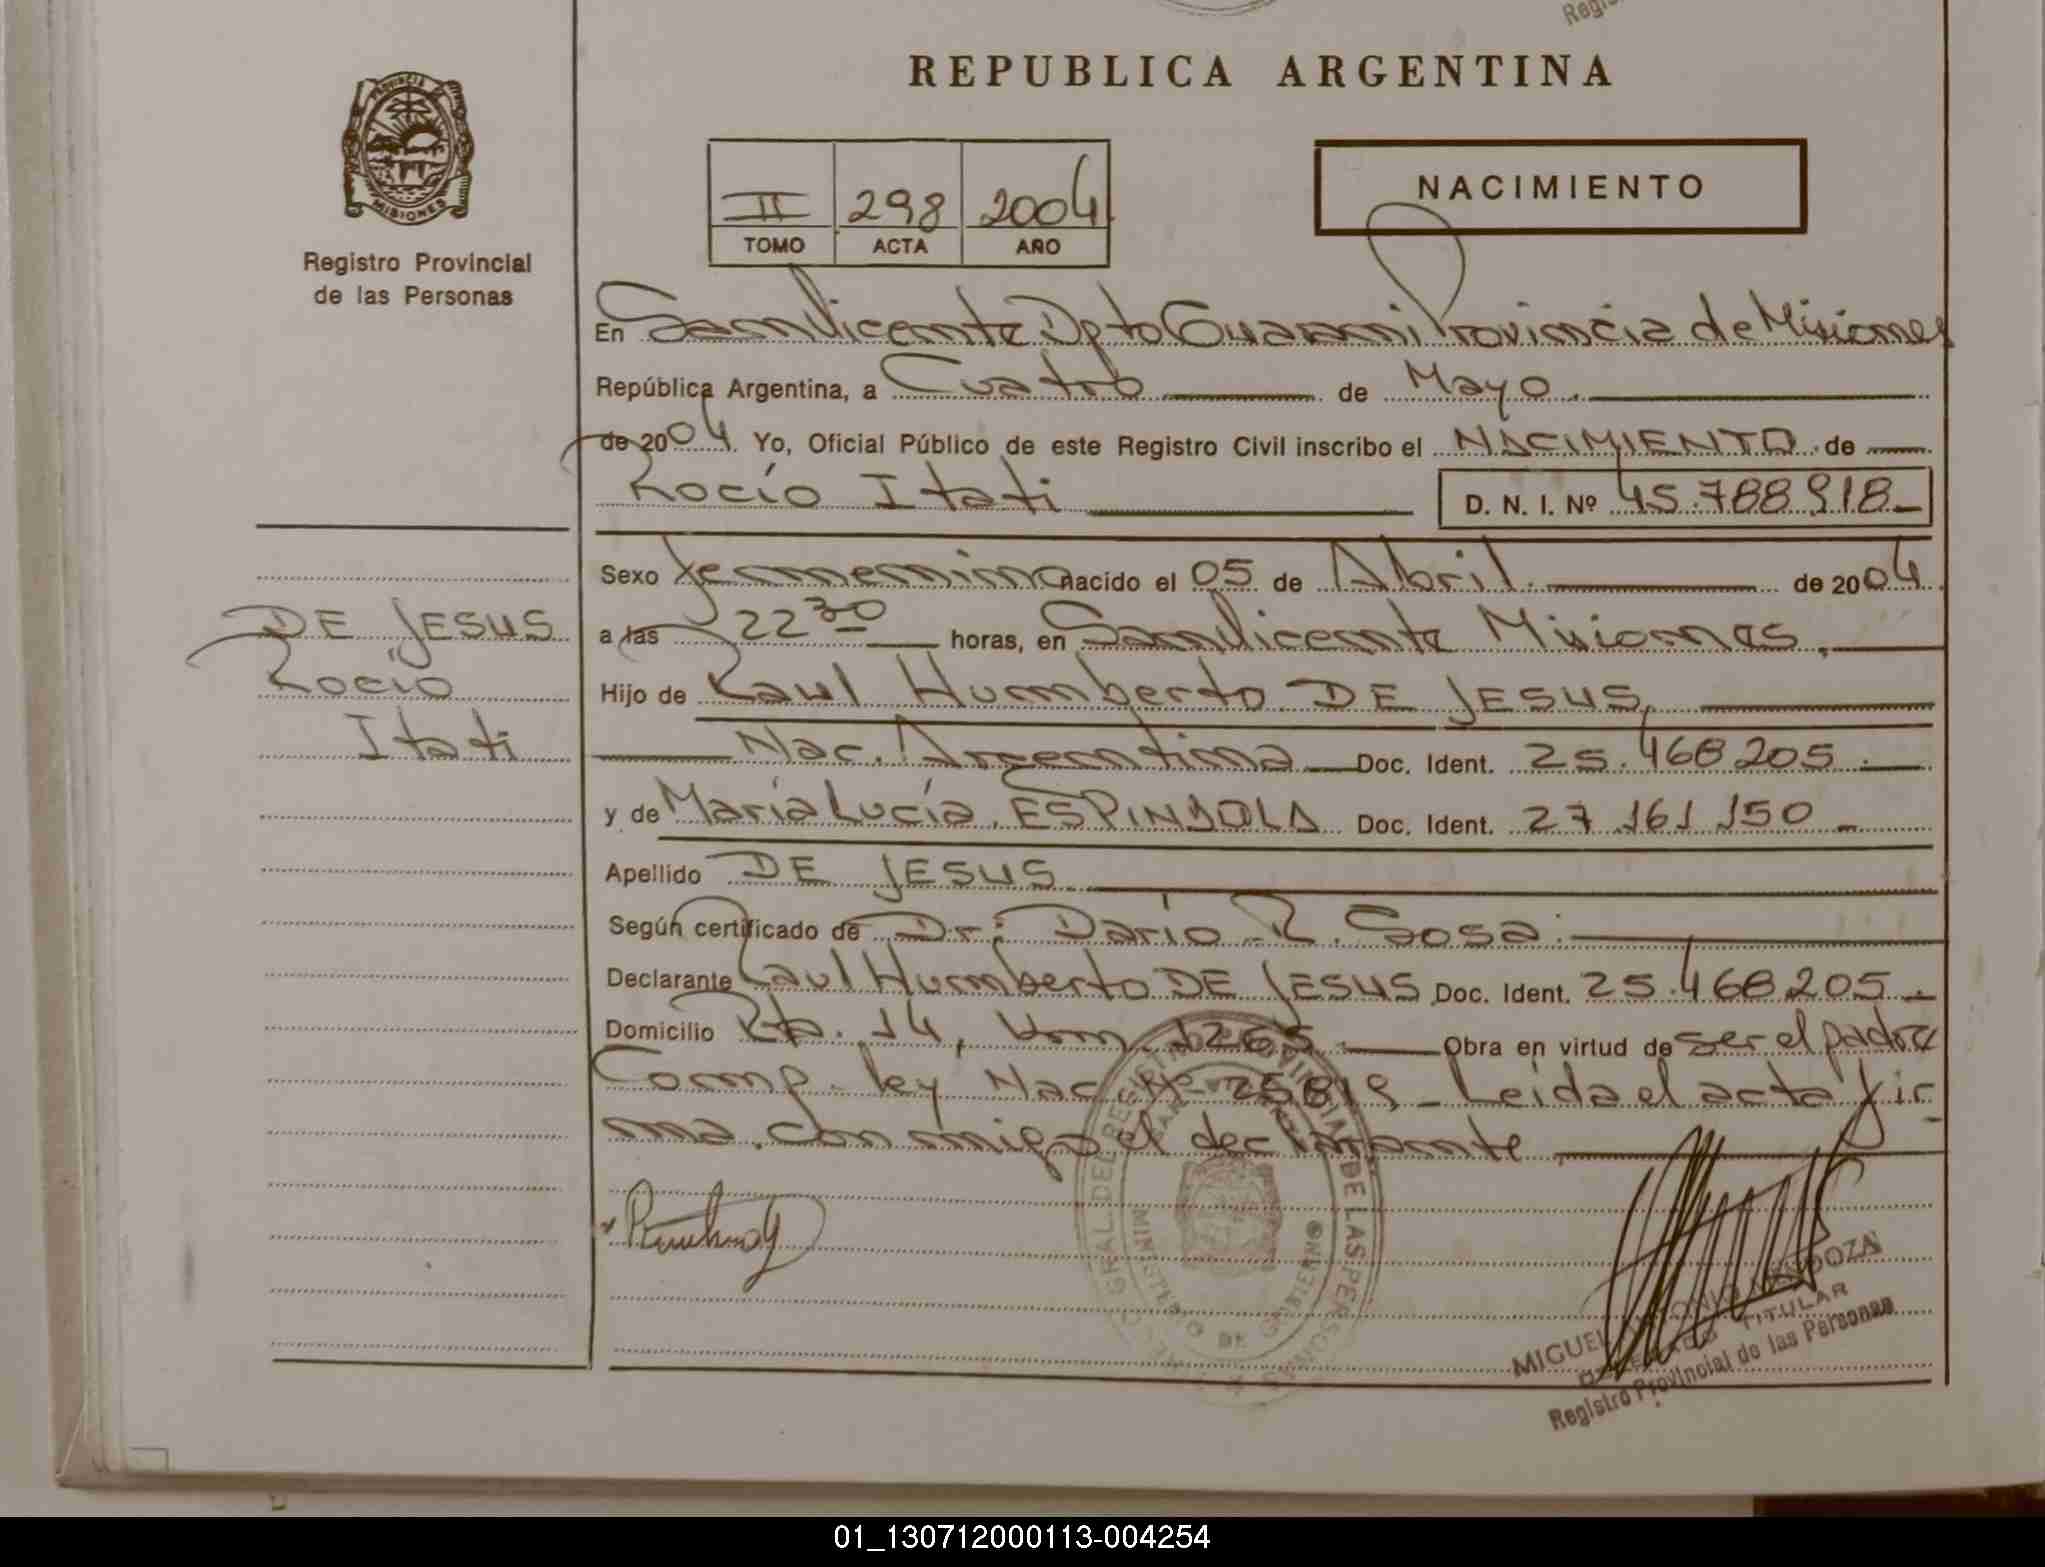 REPUBLICA ARGENTINA
PROVINCIA DE
MISIONES
Registro Provincial
de las Personas
II 298 2004
TOMO ACTA AÑO
NACIMIENTO
En San Vicente Dpto Guarani Provincia de Misiones
República Argentina, a Cuatro de Mayo.
de 2004. Yo, Oficial Público de este Registro Civil inscribo el NACIMIENTO de
Rocío Itati D. N. I. Nº 45.788.918_
Sexo femenino nacido el 05 de Abril. de 2004.
a las 22 30 horas, en San Vicente Misiones,
Hijo de Raul Humberto DE JESUS,
Nac. Argentina Doc. Ident. 25.468.205.
y de María Lucía ESPINDOLA Doc. Ident. 27.161.150_
Apellido DE JESUS
Según certificado de Dr: Darío R. Sosa.
Declarante Raul Humberto DE JESUS Doc. Ident. 25.468.205.
Domicilio Rta. 14, Km. 1265. Obra en virtud de ser el padre
Comp. Ley Nac. Nº 25819_ Leída el acta fir-
ma conmigo el declarante
DE JESUS
Rocío
Itati
MINISTERIO DE GOBIERNO
MIGUEL ANTONIO MENDOZA
DELEGADO TITULAR
Registro Provincial de las Personas
01_130712000113-004254